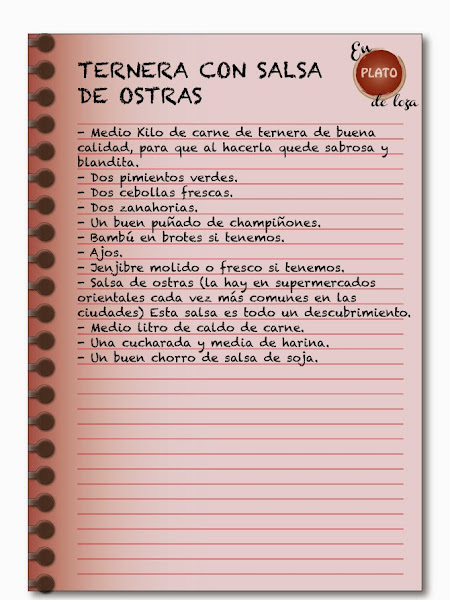 En
PLATO
de loza
TERNERA CON SALSA
DE OSTRAS
- Medio Kilo de carne de ternera de buena
calidad, para que al hacerla quede sabrosa y
blandita.
- Dos pimientos verdes.
- Dos cebollas frescas.
- Dos zanahorias.
- Un buen puñado de champiñones.
- Bambú en brotes si tenemos.
- Ajos.
- Jenjibre molido o fresco si tenemos.
- Salsa de ostras (la hay en supermercados
orientales cada vez más comunes en las
ciudades) Esta salsa es todo un descubrimiento.
- Medio litro de caldo de carne.
- Una cucharada y media de harina.
- Un buen chorro de salsa de soja.